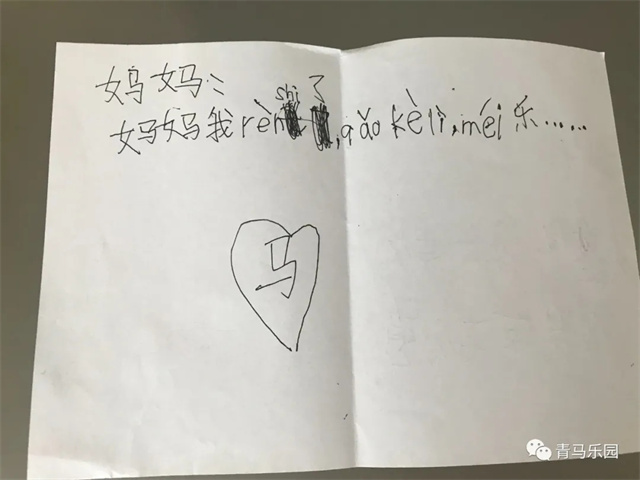 妈妈:
妈妈我rèn shi 了,qǎo kè lì,méi 乐……
马
青马乐园